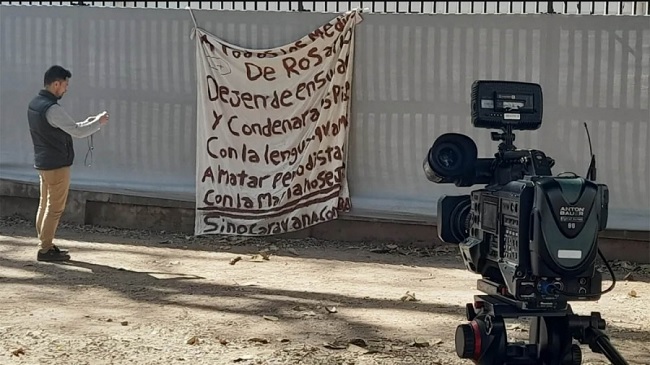 A Todos los Medios
De Rosario
Dejen de ensuciar
Y Condenar a los Pibes
Con la lengua
A matar periodistas
Con la Mafia no se J
Sino
ANTON
BAUER